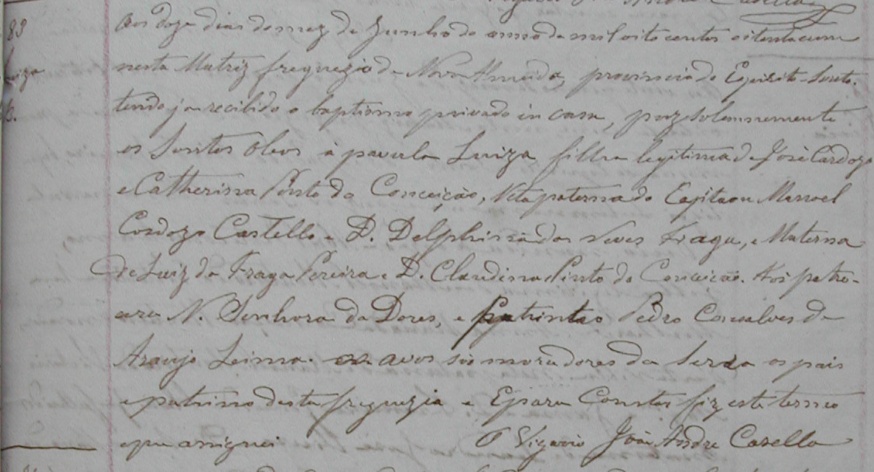 89
Aos doze dias do mez de Junho do anno de mil oito centos oitenta e um
Luiza
nesta Matriz freguezia de Nova Almeida, provincia do Espirito-Santo
tendo ja recibido o baptismo privado en casa, puz solemnemente
os Santos Oleos à parvula Luiza filha legitima de José Cardozo
e Catherina Pinto da Conceição, Neta paterna do Capitaon Manoel
Cardozo Castello e D. Delphina das Neves Fraga, e Materna
de Luiz da Fraga Pereira e D. Claudina Pinto da Conceição. Foi
N. Senhora da Dores, e Patrinho Pedro Goncalves de
Araujo Leima. os avos são moradores da Serra os pais
e patrino desta freguezia e Epara Constar fiz este termo
que assignei O Vigario João Andre Casella